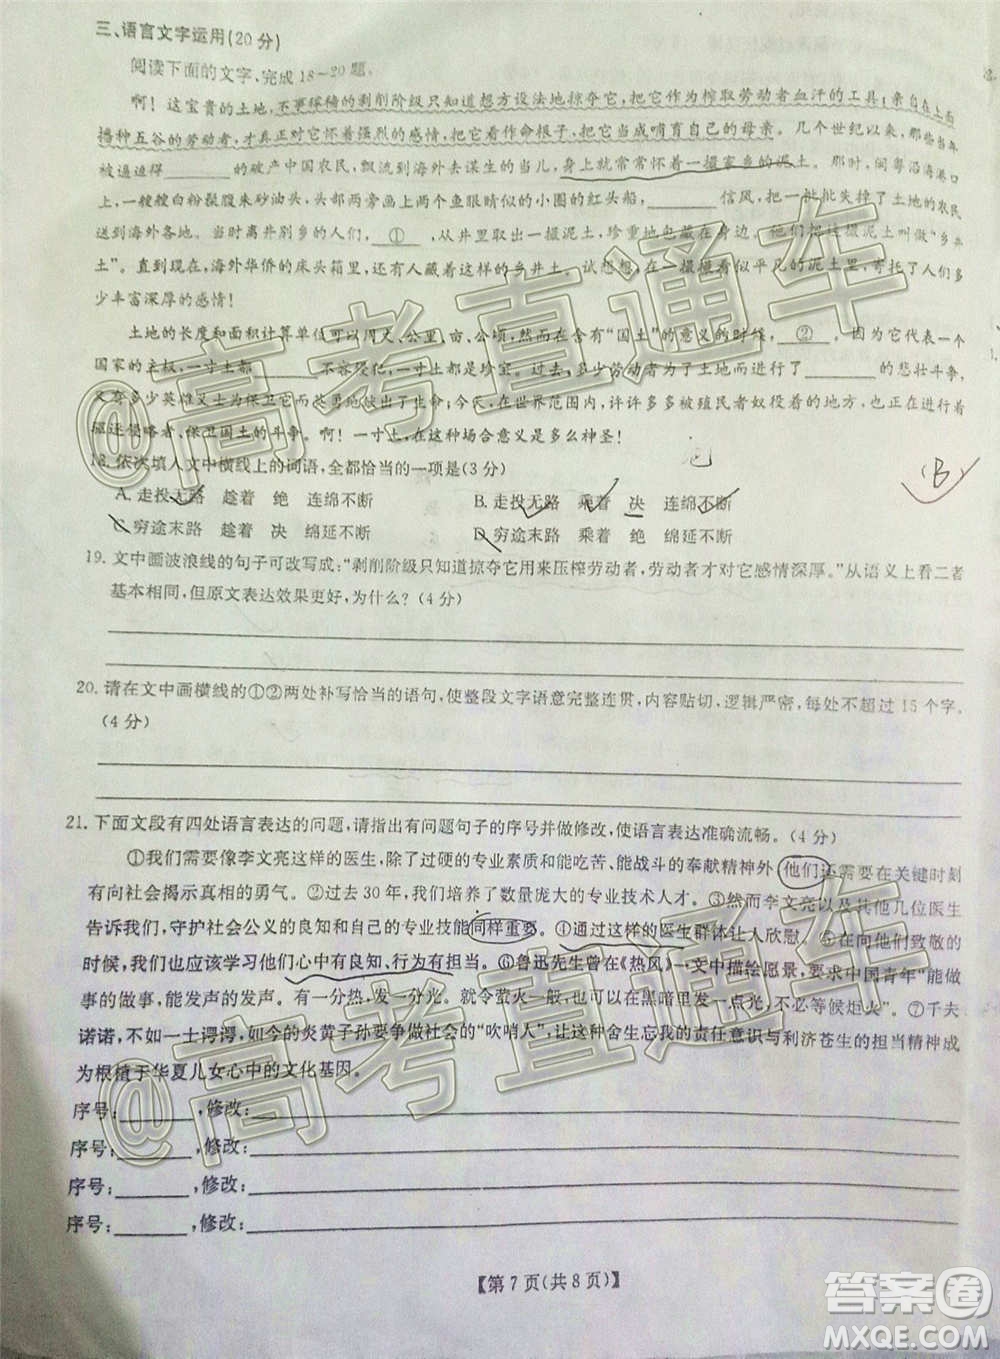 三、语言文字运用(20分)
阅读下面的文字,完成18~20题。
啊！这宝贵的土地,不事稼穑的剥削阶级只知道想方设法地掠夺它,把它作为榨取劳动者血汗的工具;亲自在上面
播种五谷的劳动者,才真正对它怀着强烈的感情,把它看作命根子,把它当成哺育自己的母亲。几个世纪以来,那些当年
被逼迫得______的破产中国农民,飘流到海外去谋生的当儿,身上就常常怀着一撮家乡的泥土。那时,闽粤沿海港口
上,一艘艘白粉髹腹朱砂油头,头部两旁画上两个鱼眼睛似的小圈的红头船,______信风,把一批批失掉了土地的农民
送到海外各地。当时离乡别井的人们,①,从井里取出一撮泥土,珍重地包藏在身边。他们把这撮泥土叫做“乡井
土”。直到现在,海外华侨的床头箱里,还有人藏着这样的乡井土。试想想,在一撮撮看似平凡的泥土里,寄托了人们多
少丰富深厚的感情！
土地的长度和面积计算单位可以用丈、公里、亩、公顷等等,但在含有“国土”的意义的时候,②,一个
国家的主权,一寸土都______不容侵犯,一寸土都是珍宝。过去,多少劳动者为了土地进行了______的悲壮斗争,
又有多少英雄义士为保卫它英勇地献出了生命;今天,在世界范围内,许许多多被殖民者奴役着的地方,
驱逐侵略者、保卫国土的斗争。啊！一寸土,在这种场合意义是多么神圣！
18. 依次填入文中横线上的词语,全都恰当的一项是(3分)
A. 走投无路 趁着 绝 连绵不断 B. 走投无路 乘着 决 绵延不断
C. 穷途末路 趁着 决 绵延不断 D. 穷途末路 乘着 绝 连绵不断
B
19. 文中画波浪线的句子可改写成:“剥削阶级只知道掠夺它用来压榨劳动者,劳动者才对它感情深厚。”从语义上看二者
基本相同,但原文表达效果更好,为什么?(4分)
20. 请在文中画横线的①②两处补写恰当的语句,使整段文字语意完整连贯,内容贴切,逻辑严密,每处不超过15个字。
(4分)
21. 下面文段有四处语言表达的问题,请指出有问题句子的序号并做修改,使语言表达准确流畅。(4分)
①我们需要像李文亮这样的医生,除了过硬的专业素质和能吃苦、能战斗的奉献精神外,他们还需要在关键时刻
有向社会揭示真相的勇气。②过去30年,我们培养了数量庞大的专业技术人才。③然而李文亮以及其他几位医生
告诉我们,守护社会公义的良知和自己的专业技能同样重要。④通过这样的医生群体让人欣慰。⑤当我们向他们致敬的
时候,我们也应该学习他们心中有良知、行为有担当。⑥鲁迅先生曾在《热风》一文中描绘愿景,要求中国青年“能做
事的做事,能发声的发声。有一分热,发一分光。就令萤火一般,也可以在黑暗里发一点光,不必等候炬火”。⑦千夫
诺诺,不如一士谔谔,如今的炎黄子孙要争做社会的“吹哨人”,让这种舍生忘我的责任意识与利济苍生的担当精神成
为根植于华夏儿女心中的文化基因。
序号:______,修改:
序号:______,修改:
序号:______,修改:
序号:______,修改:
【第7页(共8页)】
@高考直通车
@高考直通车
答案圈
MXQE.COM